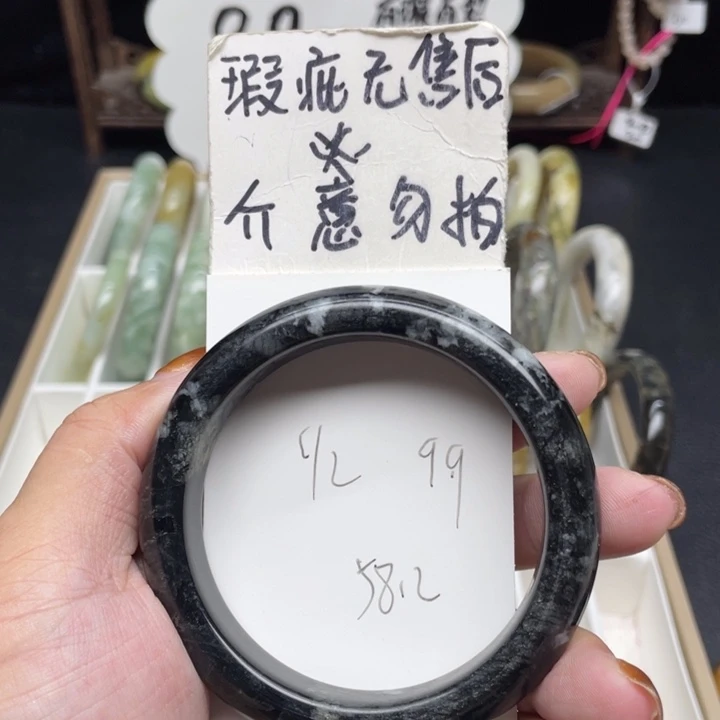 瑕疵无售后
介意勿拍
99
58.2